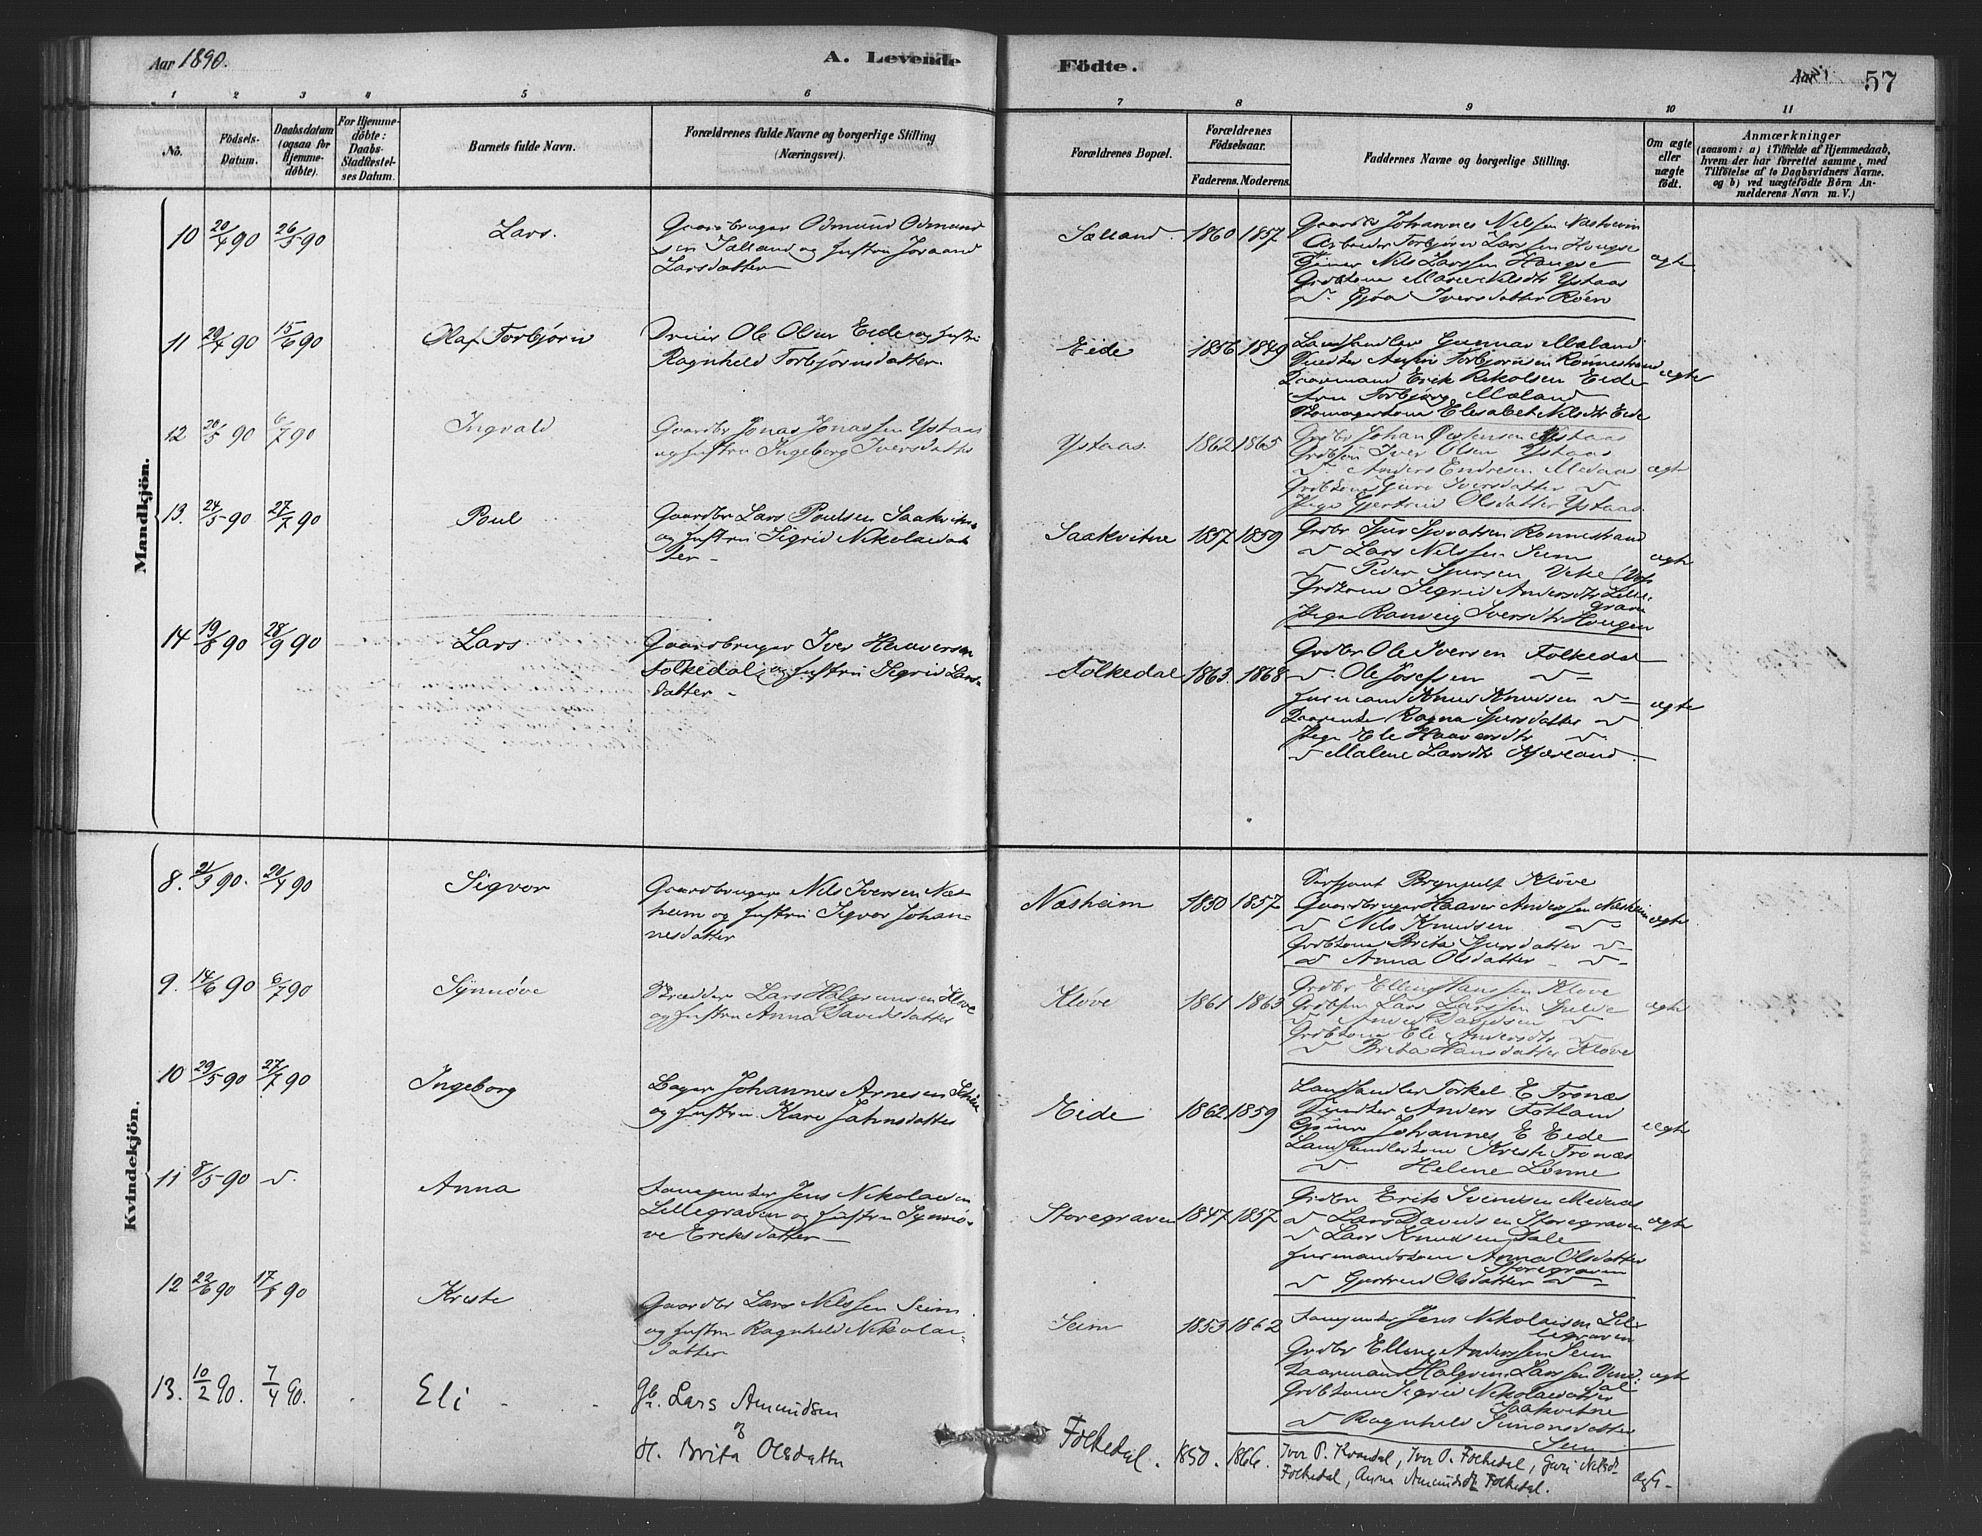 Aar 1890.
A. Levende
Födte.
Aar
57
1 2 3 4 5 6 7 8 9 10 11
No.
Födsels-
Datum.
Daabsdatum
(ogsaa for
Hjemme-
döbte).
For Hjemme-
döbte:
Daabs-
Stadfæstel-
ses Datum.
Barnets fulde Navn.
Forældrenes fulde Navne og borgerlige Stilling
(Næringsvei).
Forældrenes Bopæl.
Forældrenes
Födselsaar.
Faderens. Moderens.
Faddernes Navne og borgerlige Stilling.
Om ægte
eller
uægte
födt.
Anmærkninger
(saasom: a) i Tilfælde af Hjemmedaab,
hvem der har forrettet samme, med
Tilföielse af to Daabsvidners Navne.
og b) ved uægtefödte Börn An-
melderens Navn m. V.)
Mandkjön.
10 20/4 90 26/5 90
Lars.
Gaardbruger Odmund Odmund
sen Sælland og Hustru Joraand
Larsdatter
Sælland 1860 1857
Gaardbr Johannes Nilsen Næsheim
Arbeider Torbjörn Larssen Hougse
Tjener Nils Larssen Haugse
Grdbkone Mari Nilsdtr Ystaas
v. Gjöa Iversdatter Röen
ægte
11 29/4 90 15/6 90
Olaf Torbjörn
Ole Olsen Eide og Hustru
Ragnheld Torbjörnsdatter
Eide 1856 1849
Landhandler Gunnar Mæland
Torbjörnsen Rönnestrand
Erik Rikolsen Eide
Fru Torbjörg Mæland
Elisabet Nilsdtr Eide
ægte
12 20/5 90 6/7 90
Ingvald
Gaardbr Jonas Jonassen Ystaas
og Hustru Ingeborg Iversdatter
Ystaas 1862 1865
Grdbr Johan Ystaas
Grdbsön Iver Olsen Ystaas
v. Anders Endresen Medaas
Grdbkone Guro Iversdatter v
Pige Gjertrud Olsdatter Ystaas
ægte
13. 24/5 90 27/7 90
Poul
Gaardbr Lars Poulsen Saakvitne
og Hustru Sigrid Nikolaidat
ter
Saakvitne 1857 1859
Grdbr Sjur Sjovatsen Rönnestrand
v Lars Nilssen Seim
v Peder Sjursen Veke (Voss
Grdkone Sigrid Andersdtr Lille-
graven
Pige Ranveig Iversdtr Hougen
ægte
14 19/8 90 28/9 90
Lars
Gaardbruger Iver Haaversen
Folkedal og Hustru Sigrid Lars-
datter
Folkedal 1863. 1868
Grdbr Ole Iversen Folkedal
v. Ole Josefsen v
Husmand Knud Knudsen v
Ragna Sjursdatter v
Pige Eli Haaversdtr v.
v Malene Larsdtr Kjærland
ægte
Kvindekjön.
8. 21/3 90. 20/4 90
Sigvor
Gaardbruger Nils Iversen Næs-
heim og Hustru Sigvor Johan-
nesdatter
Næsheim 1850 1857
Sersjant Brynjulf Klöve
Gaardbruger Haaver Anderssen Næsheim
v Nils Knudsen v
Grdbkone Brita Sjursdatter v
v Anna Olsdatter v
ægte
9. 14/6 90 6/7 90
Synnöve
Lars Halgrimsen Klöve
og Hustru Anna Davidsdatter
Klöve 1861 1863
Grdbr Elling Hanssen Klöve
Grdbsön Lars Larssen
v Davidsen v
Grdbkone Eli Andersdtr
v Brita Hansdatter Klöve
ægte
10 29/5 90 27/7 90
Ingeborg
Bager Johannes Arnesen
og Hustru Kari Jahnsdatter
Eide 1862 1859
Landhandler Torkel E Tronæs
Anders Fotland
Johannes E Eide
Landhandlerkone Kreste Tronæs
v. Helene Lönne
ægte
11 8/5 90 v.
Anna
Jens Nikolaisen
Lillegraven og Hustru Synnö-
ve Eriksdatter
Storegraven 1847 1857
Grdbr Erik Svendsen Medaas
v Lars Davidsen Storegraven
v Lars Knudsen Dale
Husmandskone Anna Olsdatter
Storegraven
v Gjertrud Olsdatter v
ægte
12 22/6 90 17/8 90
Kreste
Gaardbr Lars Nilssen Seim
og Hustru Ragnheld Nikolai-
datter
Seim 1853 1862
Jens Nikolaisen Lil-
legraven
Grdbr Elling Anderssen Seim
Halgrim Larssen
Grdbkone Sigrid Nikolaidatter
Saakvitne
v Ragnheld Simonsdatter
Seim
ægte
13. 10/2 90. 7/4 90.
Eli
Gb. Lars Amundsen
og
H. Brita Olsdatter
Folkedal. 1850. 1866.
Iver P. Kvandal, Iver O. Folkedal, Guri Nilsdr
Folkedal, Anna Amundsdtr Folkedal.
ægte